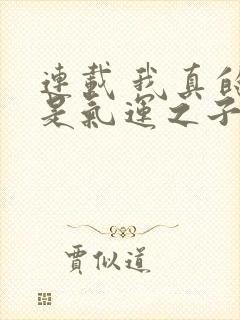 連載 我真的
是氣運之子
賈似道